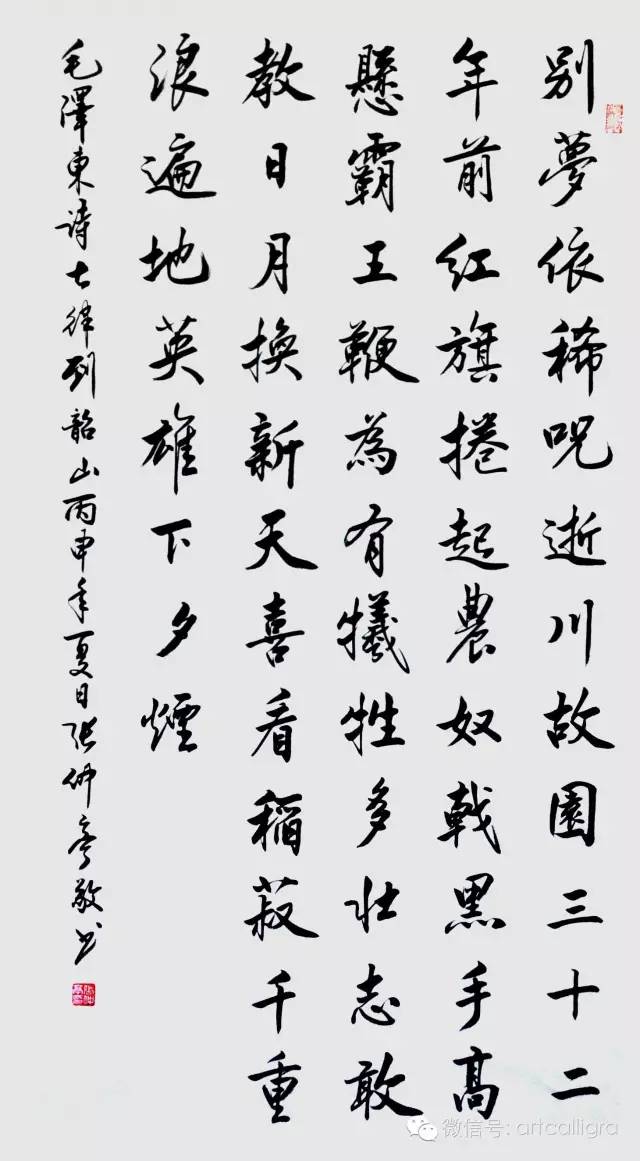 别夢依稀呪逝川故園三十二
年前紅旗捲起農奴戟黑手高
懸霸王鞭為有犧牲多壯志敢
教日月換新天喜看稻菽千重
浪遍地英雄下夕煙
毛澤東诗七律到韶山丙申年夏日张仲亭敬书
微信号: artcalligra